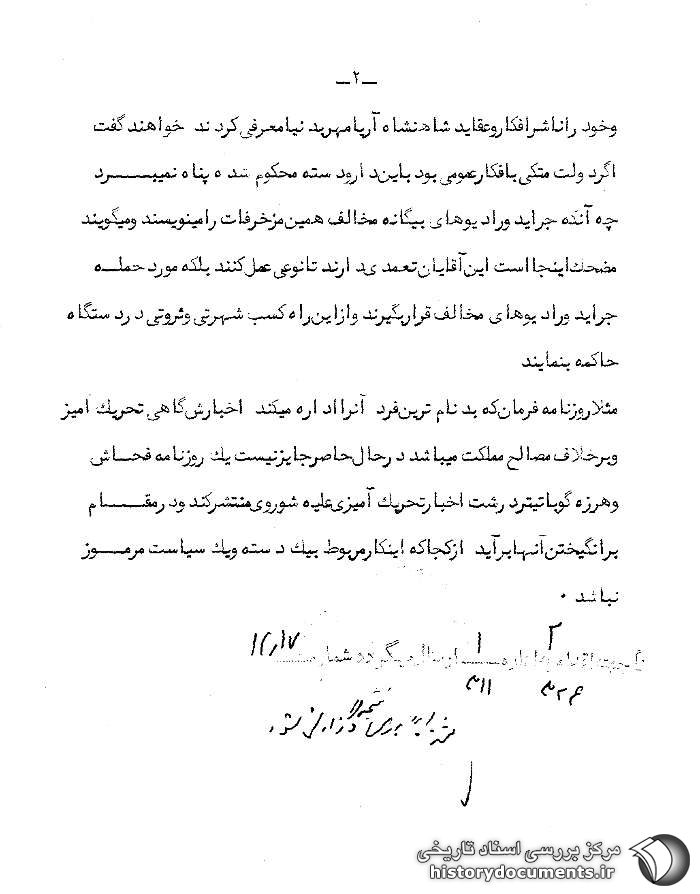 ـ۲ـ
وخود را ناشر افکار و عقاید شاهنشاه آریامهر بد نیا معرفی کرد ند خواهند گفت
اگرد ولت متکی با فکار عمومی بود باین د ارود سته محکوم شد ه پناه نمیبـــــرد
چه آنکه جراید وراد یوهای بیگانه مخالف همین مزخرفات را مینویسند ومیگویند
مضحك اینجا است این آقایان تعمد ی د ارند تا نوعی عمل کنند بلکه مورد حملـــه
جراید وراد یوها ی مخالف قرار بگیرند واز این راه کسب شهرتی وثروتی د رد ستگاه
حاکمه بنمایند
مثلا روزنامه فرمان که بد نام ترین فرد آنرا اد اره میکند اخبارش گاهی تحریك امیز
وبرخلاف مصالح مملکت میبا شد د رحال حاصر جایز نیست یك روزنامه فحـــاش
وهرزه گو با تیترد رشت اخبار تحریك آمیزی علیه شوروی منتشر کند ود رمقـــــام
برانگیختن آنها برآید از کجا که اینکار مربوط بیك د سته ویك سیاست مرمـــوز
نبا شد ۰
۲ ۱ ۱۲٫۱۷
۳۲۶ ۳۱۱
گزارش شود
مرکز بررسی اسناد تاریخی
historydocuments.ir